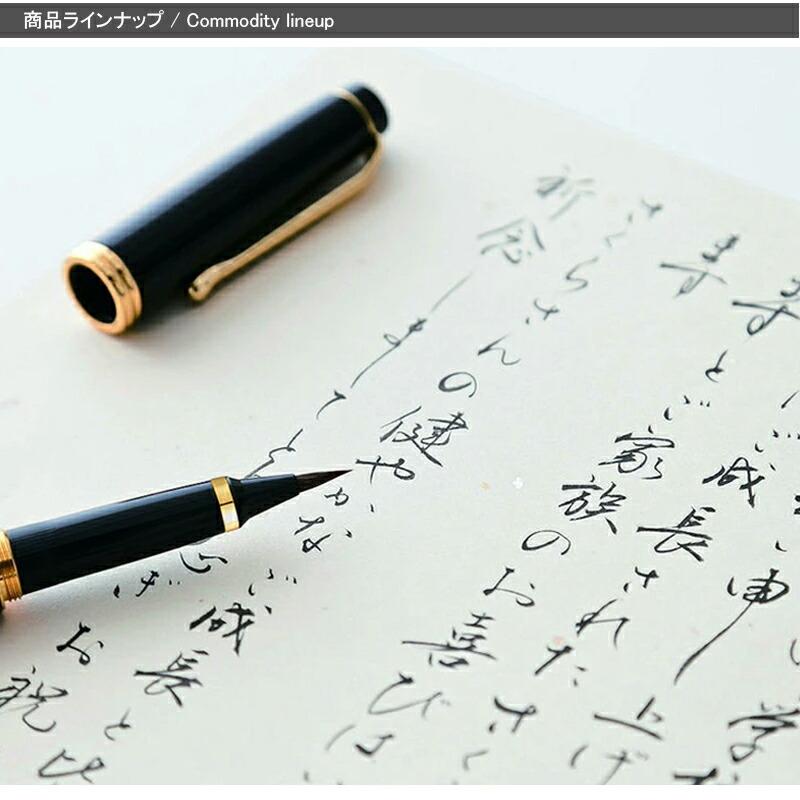 学
申し上げ
ご成長されたさく
寿とご家族のお喜びは
寿
さくらさんの健やかなご成長と
祈念しまして
お祝
商品ラインナップ / Commodity lineup